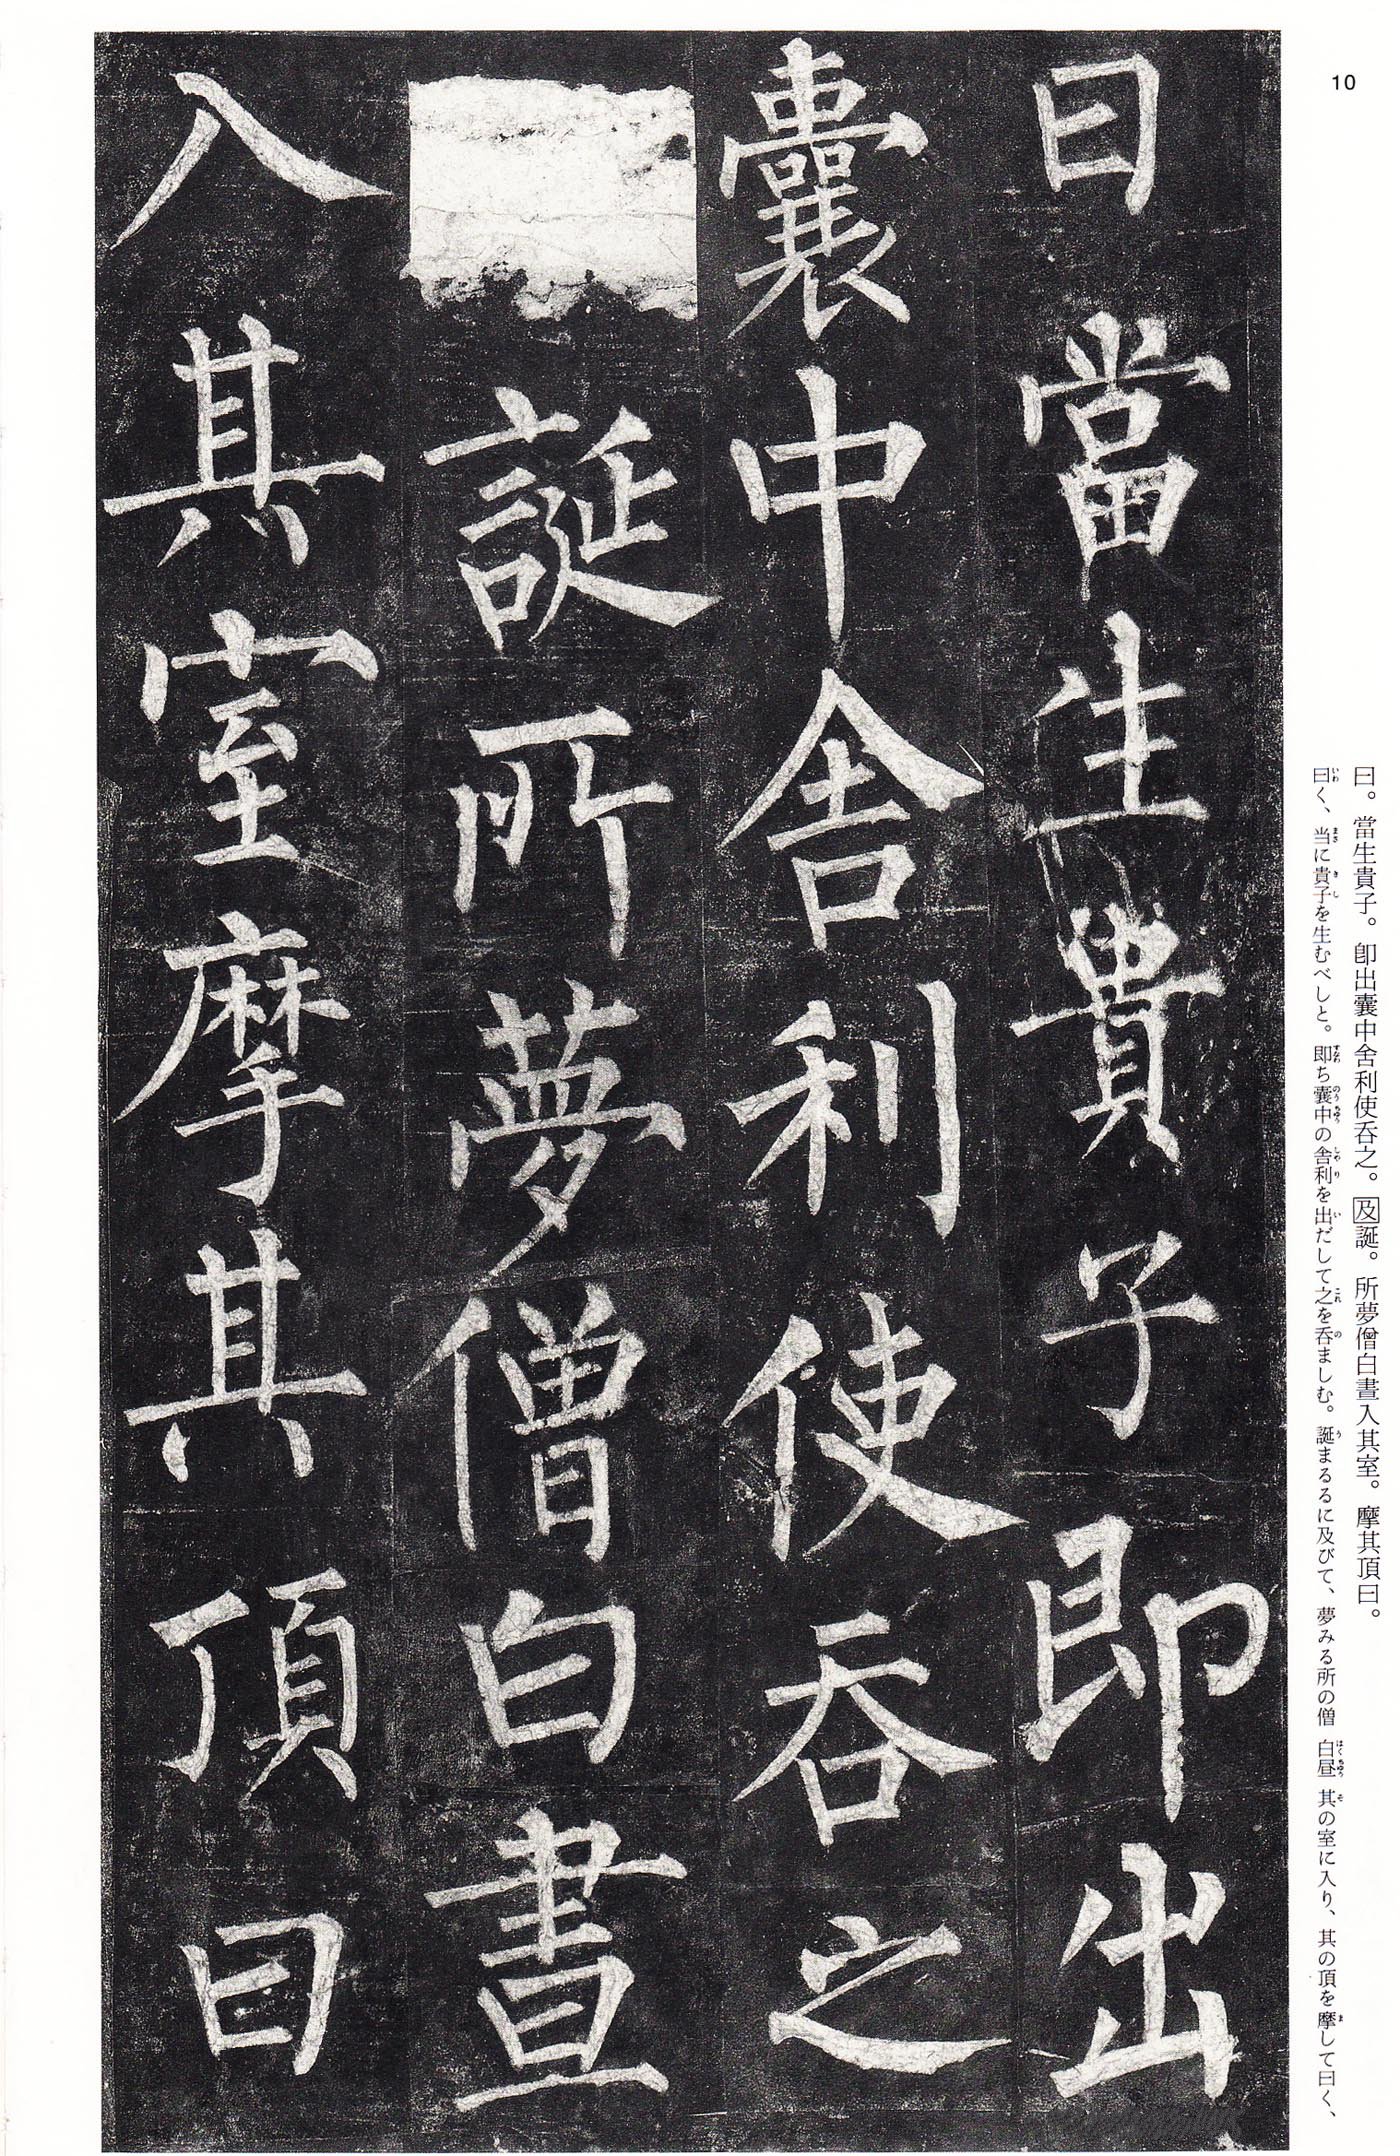 10
曰。當生貴子。卽出囊中舍利使呑之。及誕。所夢僧白晝入其室。摩其頂曰。
曰く、当に貴子を生むべしと。即ち囊中の舎利を出だして之を呑ましむ。誕まるるに及びて、夢みる所の僧 白昼 其の室に入り、其の頂を摩して曰く、
曰當生貴子即出
囊中舍利使吞之
誕所夢僧白晝
入其室摩其頂曰